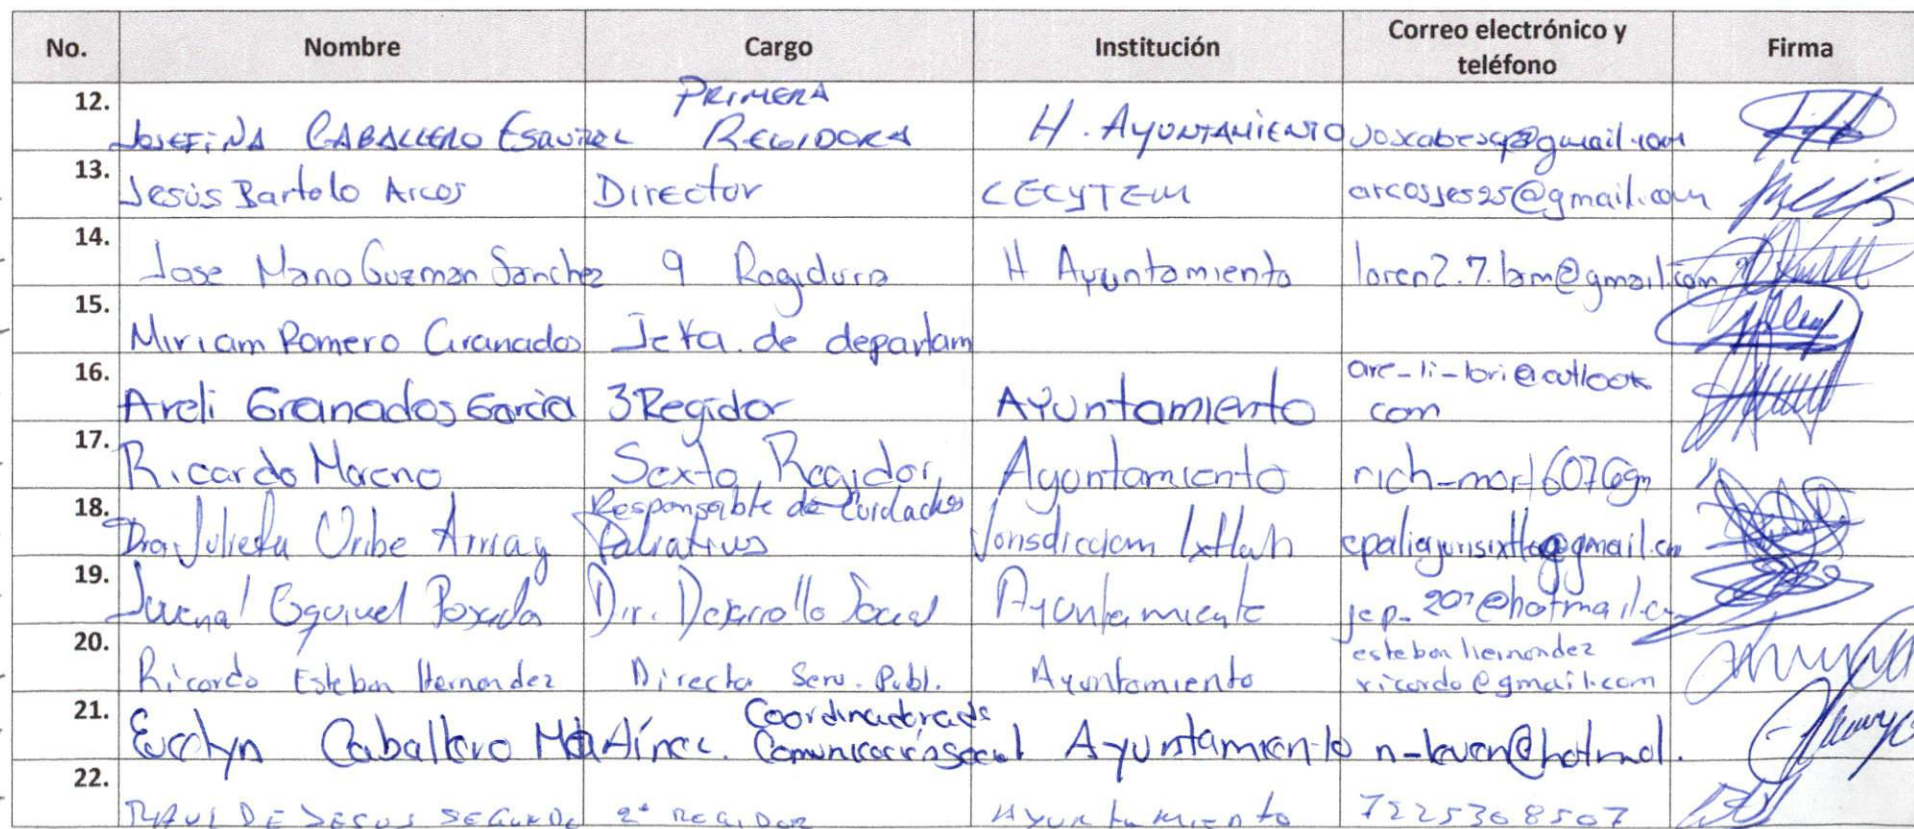 No. Nombre Cargo Institución Correo electrónico y teléfono Firma
12. JOSEFINA CABALLERO ESQUIVEL PRIMERA REGIDORA H. AYUNTAMIENTO joscabesq@gmail.com
13. Jesús Bartolo Arcos Director CECYTEM arcosjes25@gmail.com
14. Jose Mario Guzman Sanchez 9 Regiduria H Ayuntamiento loren2.7.lam@gmail.com
15. Miriam Romero Granados Jefa. de departam
16. Areli Granados Garcia 3 Regidor Ayuntamiento are_li_lori@outlook com
17. Ricardo Moreno Sexto Regidor Ayuntamiento
18. Dra Julieta Uribe Array Responsable de Cuidados Paliativos
19. Juvenal Esquivel Posadas Dir. Desarrollo Social Ayuntamiento jep_207@hotmail.c
20. Ricardo Esteban Hernandez Directo Serv. Publ. Ayuntamiento esteban hernandez ricardo@gmail.com
21. Evelyn Caballero Martínez. Coordinadora de Comunicación social Ayuntamiento
22. RAUL DE JESUS SEGUNDO 2° REGIDOR Ayuntamiento 7225368507